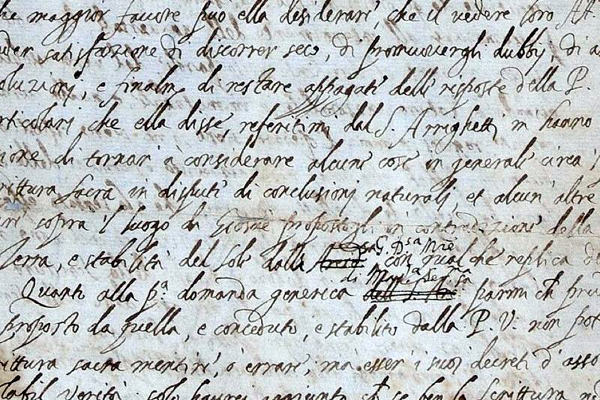 che maggior favore può ella desiderare, che il vedere loro Al
nder satisfazione di discorrer seco, di promuovergli dubbj, di a
oluzioni, e finalm.e di restare appagati delle risposte della P.
rticolari che ella disse, referitimi dal S. Arrighetti m hanno
ione di tornar' à considerare alcune cose in generale circa 'l
rittura Sacra in dispute di conclusioni naturali, et alcun' altre
sopra 'l luogo di Giosuè propostogli in contradizione della
Terra, e stabilità del Sole dalla G. D.sa M.re con qualche replica de
Quanto alla p.a domanda generica di Mad.a Ser.ma parmi ch' pru
proposto da quella, e conceduto, e stabilito dalla P. V. non pot
ittura sacra mentire, ò errare, ma esser' i suoi decreti d'asso
labil verità; solo haurei aggiunto, ch' se ben la Scrittura